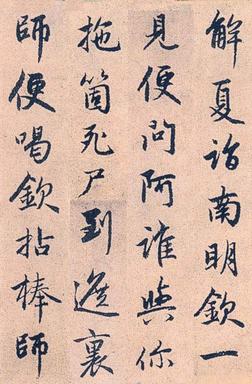 解夏詣南明欽一
見便問阿誰與你
拖箇死尸到遮裏
師便喝欽拈棒師